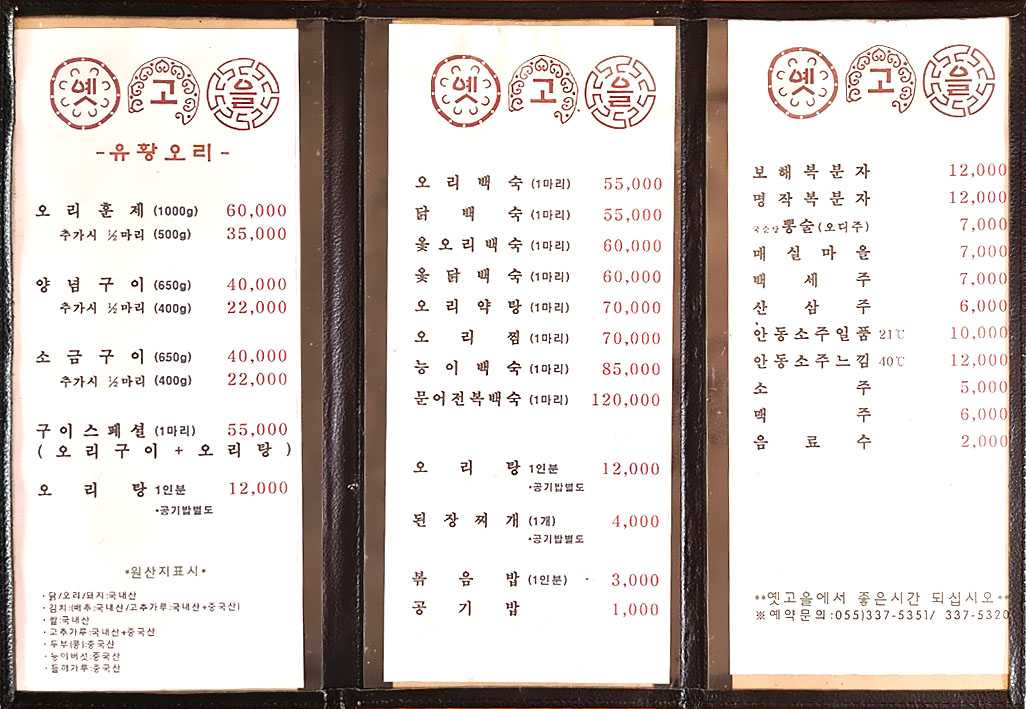 옛고을
-유황오리-
오리훈제 (1000g) 60,000
추가시 ½마리 (500g) 35,000
양념구이 (650g) 40,000
추가시 ½마리 (400g) 22,000
소금구이 (650g) 40,000
추가시 ½마리 (400g) 22,000
구이스페셜 (1마리) 55,000
(오리구이+오리탕)
오리탕 1인분 12,000
*공기밥별도
*원산지표시*
·닭/오리/돼지:국내산
·김치:(배추:국내산/고추가루:국내산+중국산)
·쌀:국내산
·고추가루:국내산+중국산
·두부(콩):중국산
·능이버섯:중국산
·들깨가루:중국산
옛고을
오리백숙 (1마리) 55,000
닭백숙 (1마리) 55,000
옻오리백숙 (1마리) 60,000
옻닭백숙 (1마리) 60,000
오리약탕 (1마리) 70,000
오리찜 (1마리) 70,000
능이백숙 (1마리) 85,000
문어전복백숙 (1마리) 120,000
오리탕 1인분 12,000
*공기밥별도
된장찌개 (1개) 4,000
*공기밥별도
볶음밥 (1인분) 3,000
공기밥 1,000
옛고을
보해복분자 12,000
명작복분자 12,000
국순당뽕술(오디주) 7,000
매실마을 7,000
백세주 7,000
산삼주 6,000
안동소주일품 21℃ 10,000
안동소주느낌 40℃ 12,000
소주 5,000
맥주 6,000
음료수 2,000
**옛고을에서 좋은시간 되십시오**
※예약문의:055)337-5351/ 337-5320